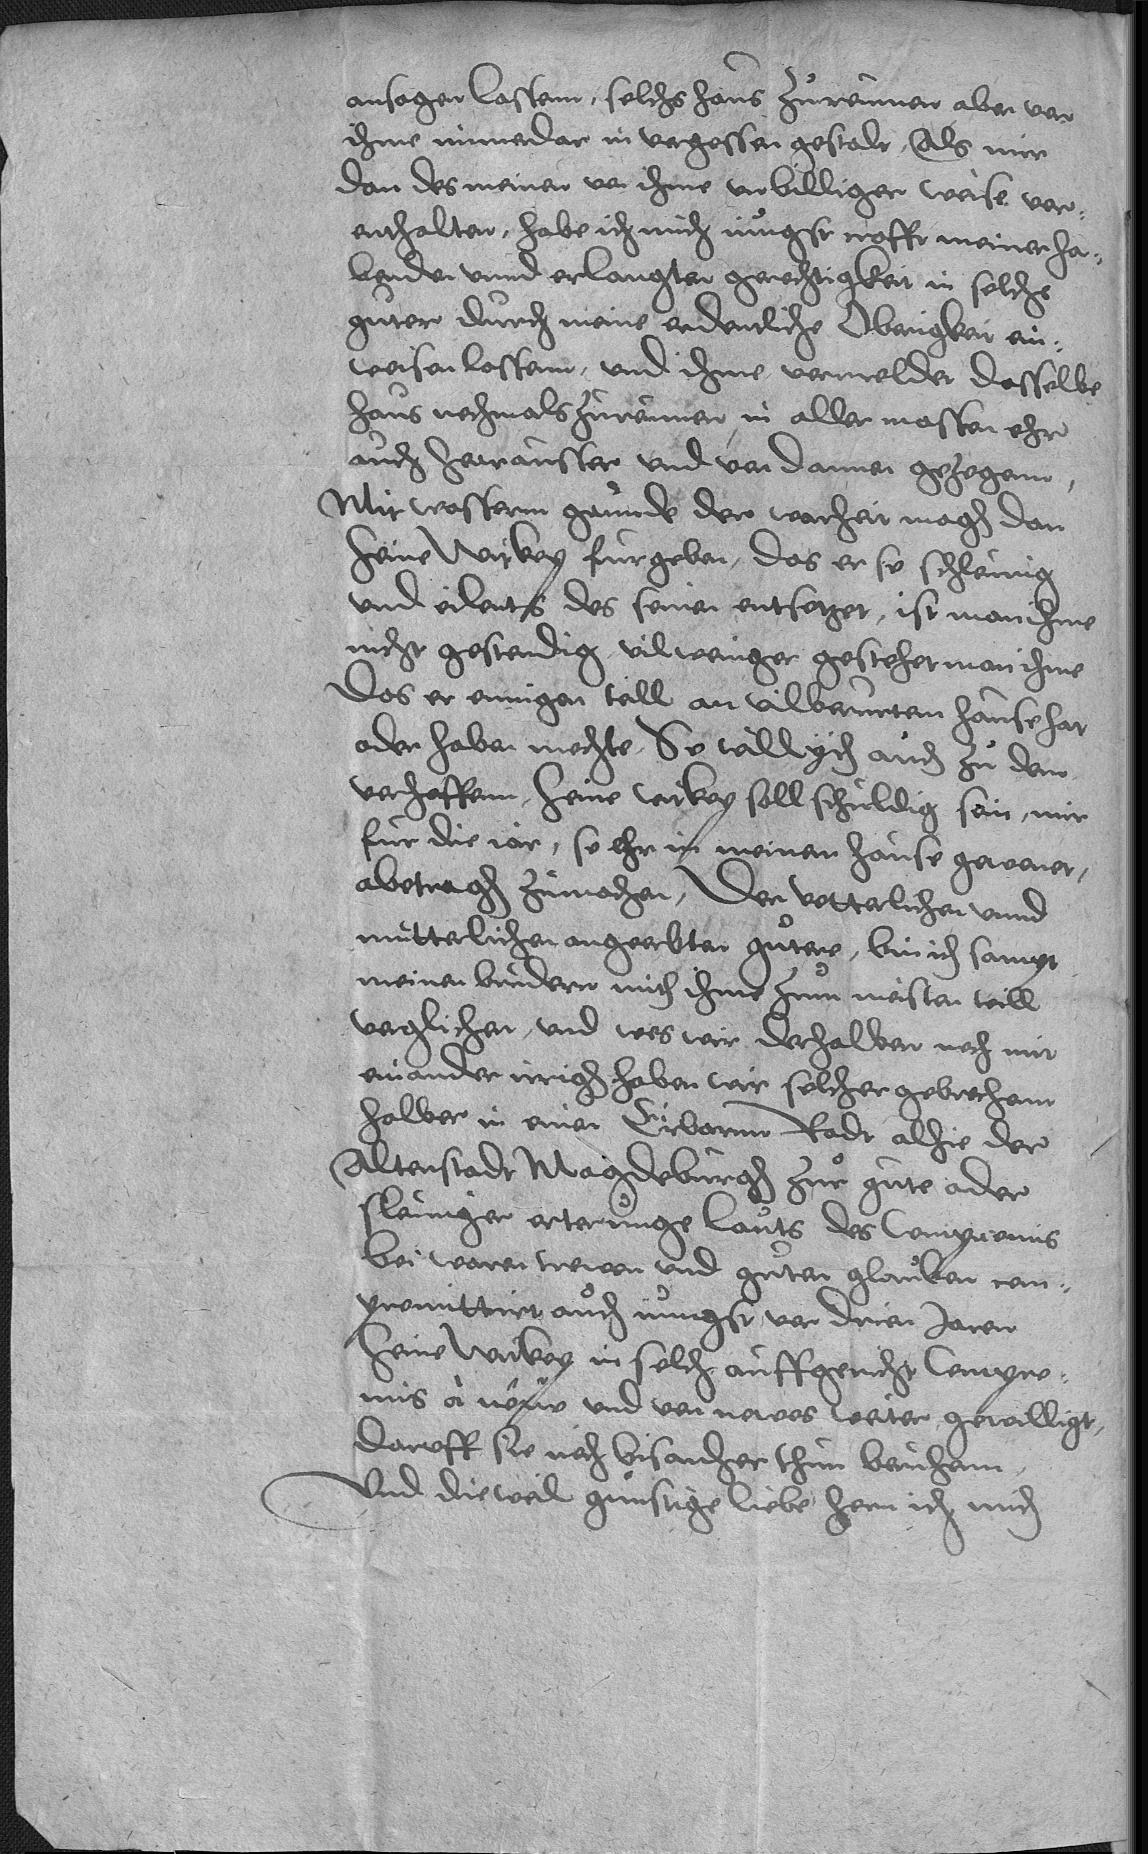 ansagen lassenn, solchs haus zureumen aber von
ihme immerdar in vergessen gestalt, Als mir
dan des meinen von ihme unbilliger weise vor-
enthalten, habe ich mich jungst crafft meiner ha-
benden unnd erlangten gerechtigkeit in solche
guter durch meine ordentliche Oberigkeit ein-
weisen lassenn, und ihme vermeldet dasselbe
haus nochmals zureumen, in aller massen ehr
auch heraus und von dannen gezogenn,
Mit wasserm grunde der warheit magh dan
Heine Wirkop furgeben, das er so schleunig
und eilents des seinen entsetzet, ist man ihme
nicht gestendig, vil weniger gestehet man ihme
Das er einigen teill an vilberurtem hause hat
oder haben mochte, So will ich auch zu dem
verhoffenn, Heine Wirkop soll schuldig sein, mir
fur die jar, so ehr in meinem hause gewonet,
abtragh zumachen, Der vetterlichen unnd
mutterlichen angeerbten gutere, bin ich sampt
meinen brudern mith ihme zum meisten teill
verglichen, und wes wir derhalben noch mit
einander irrigh haben wir solcher gebrechenn
halber in einen Erbarnn Radt alhie der
Altenstadt Magdeburgh zur gute oder
sleuniger erterunge lauts des Compromis
bei waren trewen und guten glauben com-
promittirt auch jungst vor dreien Jaren
Heine Wirkop in solch auffgericht Compro-
mis a novo und von newes weiter gewilligt,
daruff sie noch bisanher thun beruhenn,
Und die weil gunstige liebe hern ich mich